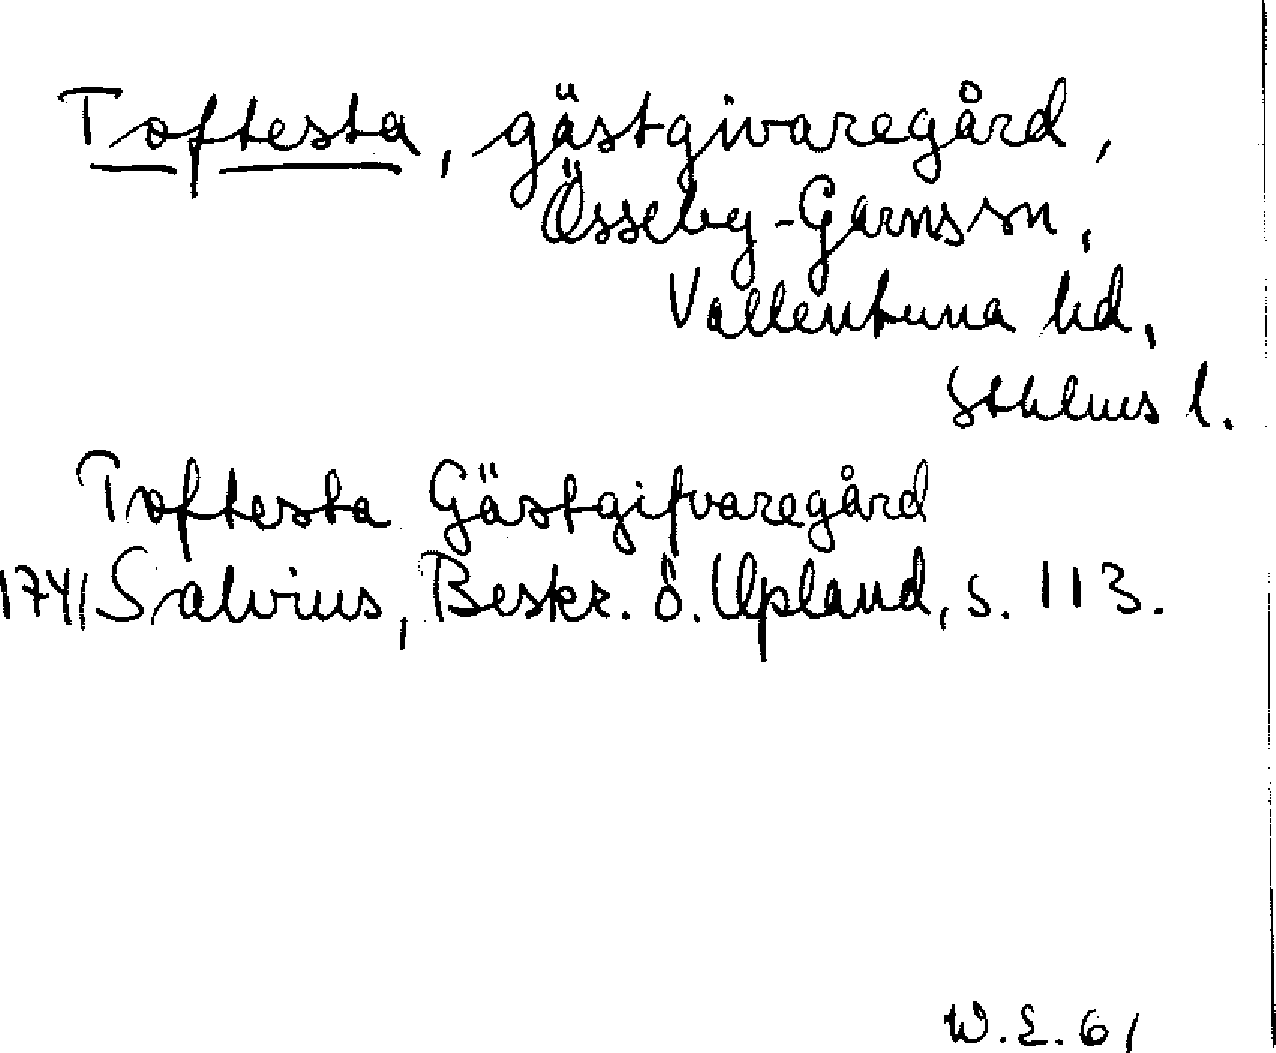 Toftesta, gästgivaregård,
Össeby-Garns sn,
Vallentuna hd,
Sthlms l.
Toftesta Gästgifvaregård
1741 Salvius, Beskr. ö. Upland, s. 113.
W.E. 61